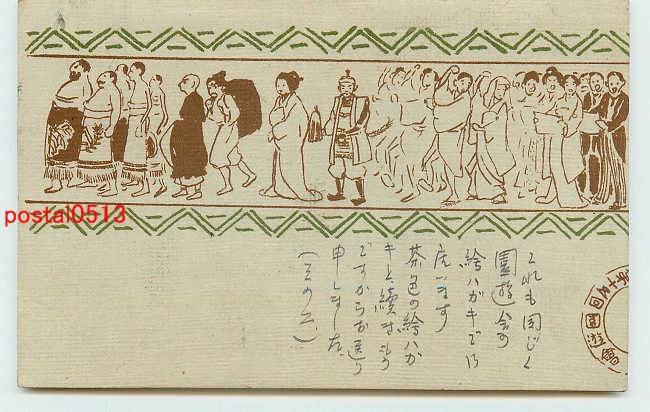 postal0513
これも同じく
園遊会の
絵ハガキで御
座います
茶色の絵ハガ
キと続きもの
ですからお送り
申しました
(その二)
園遊會